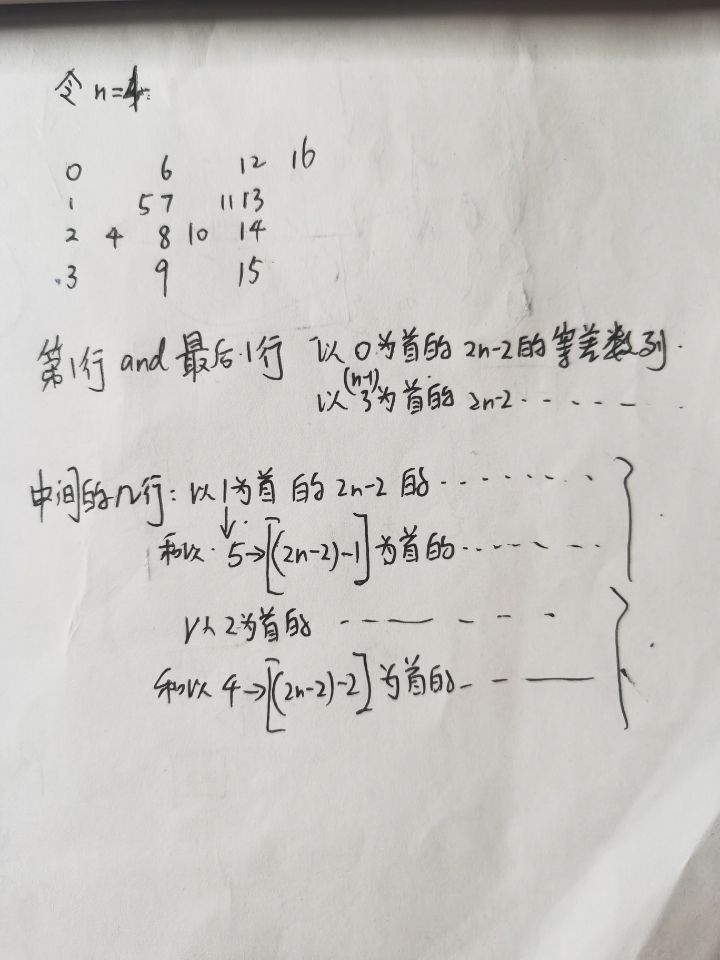 令 n=4
0 6 12 16
1 5 7 11 13
2 4 8 10 14
3 9 15
第1行 and 最后1行 以 0 为首的 2n-2 的等差数列.
(n-1)
以 3 为首的 2n-2 ......
中间的几行: 以 1 为首 的 2n-2 的 ........
↓
和以 5→[(2n-2)-1] 为首的 ......
以 2 为首的 ......
和以 4→[(2n-2)-2] 为首的 ......